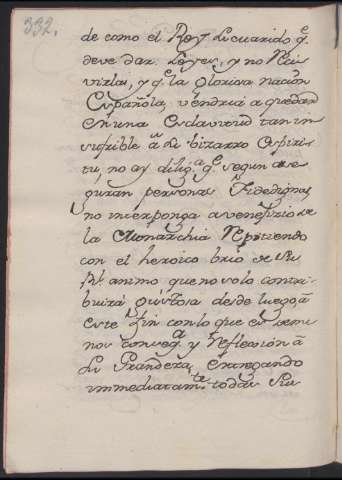 332.
de como el Rey Lucuarido q.e
deve dar Leyes, y no Reci
virlas, y q.e la gloriosa nación
Española, vendria a quedar
en una Esclavitud tan in
sufrible a su bizarro Espiri-
tu, no ay dilig.a q.e segun ase
guran personas Fidedignas,
no interponga a veneficio de
la Monarchia Repitiendo
con el heroico brio de su
R.l animo que no solo contri-
buirá gustosa desde luego a
este fin con lo que es de me
nos y Reflexión a
su Grandeza, entregando
inmediatam.te todas sus